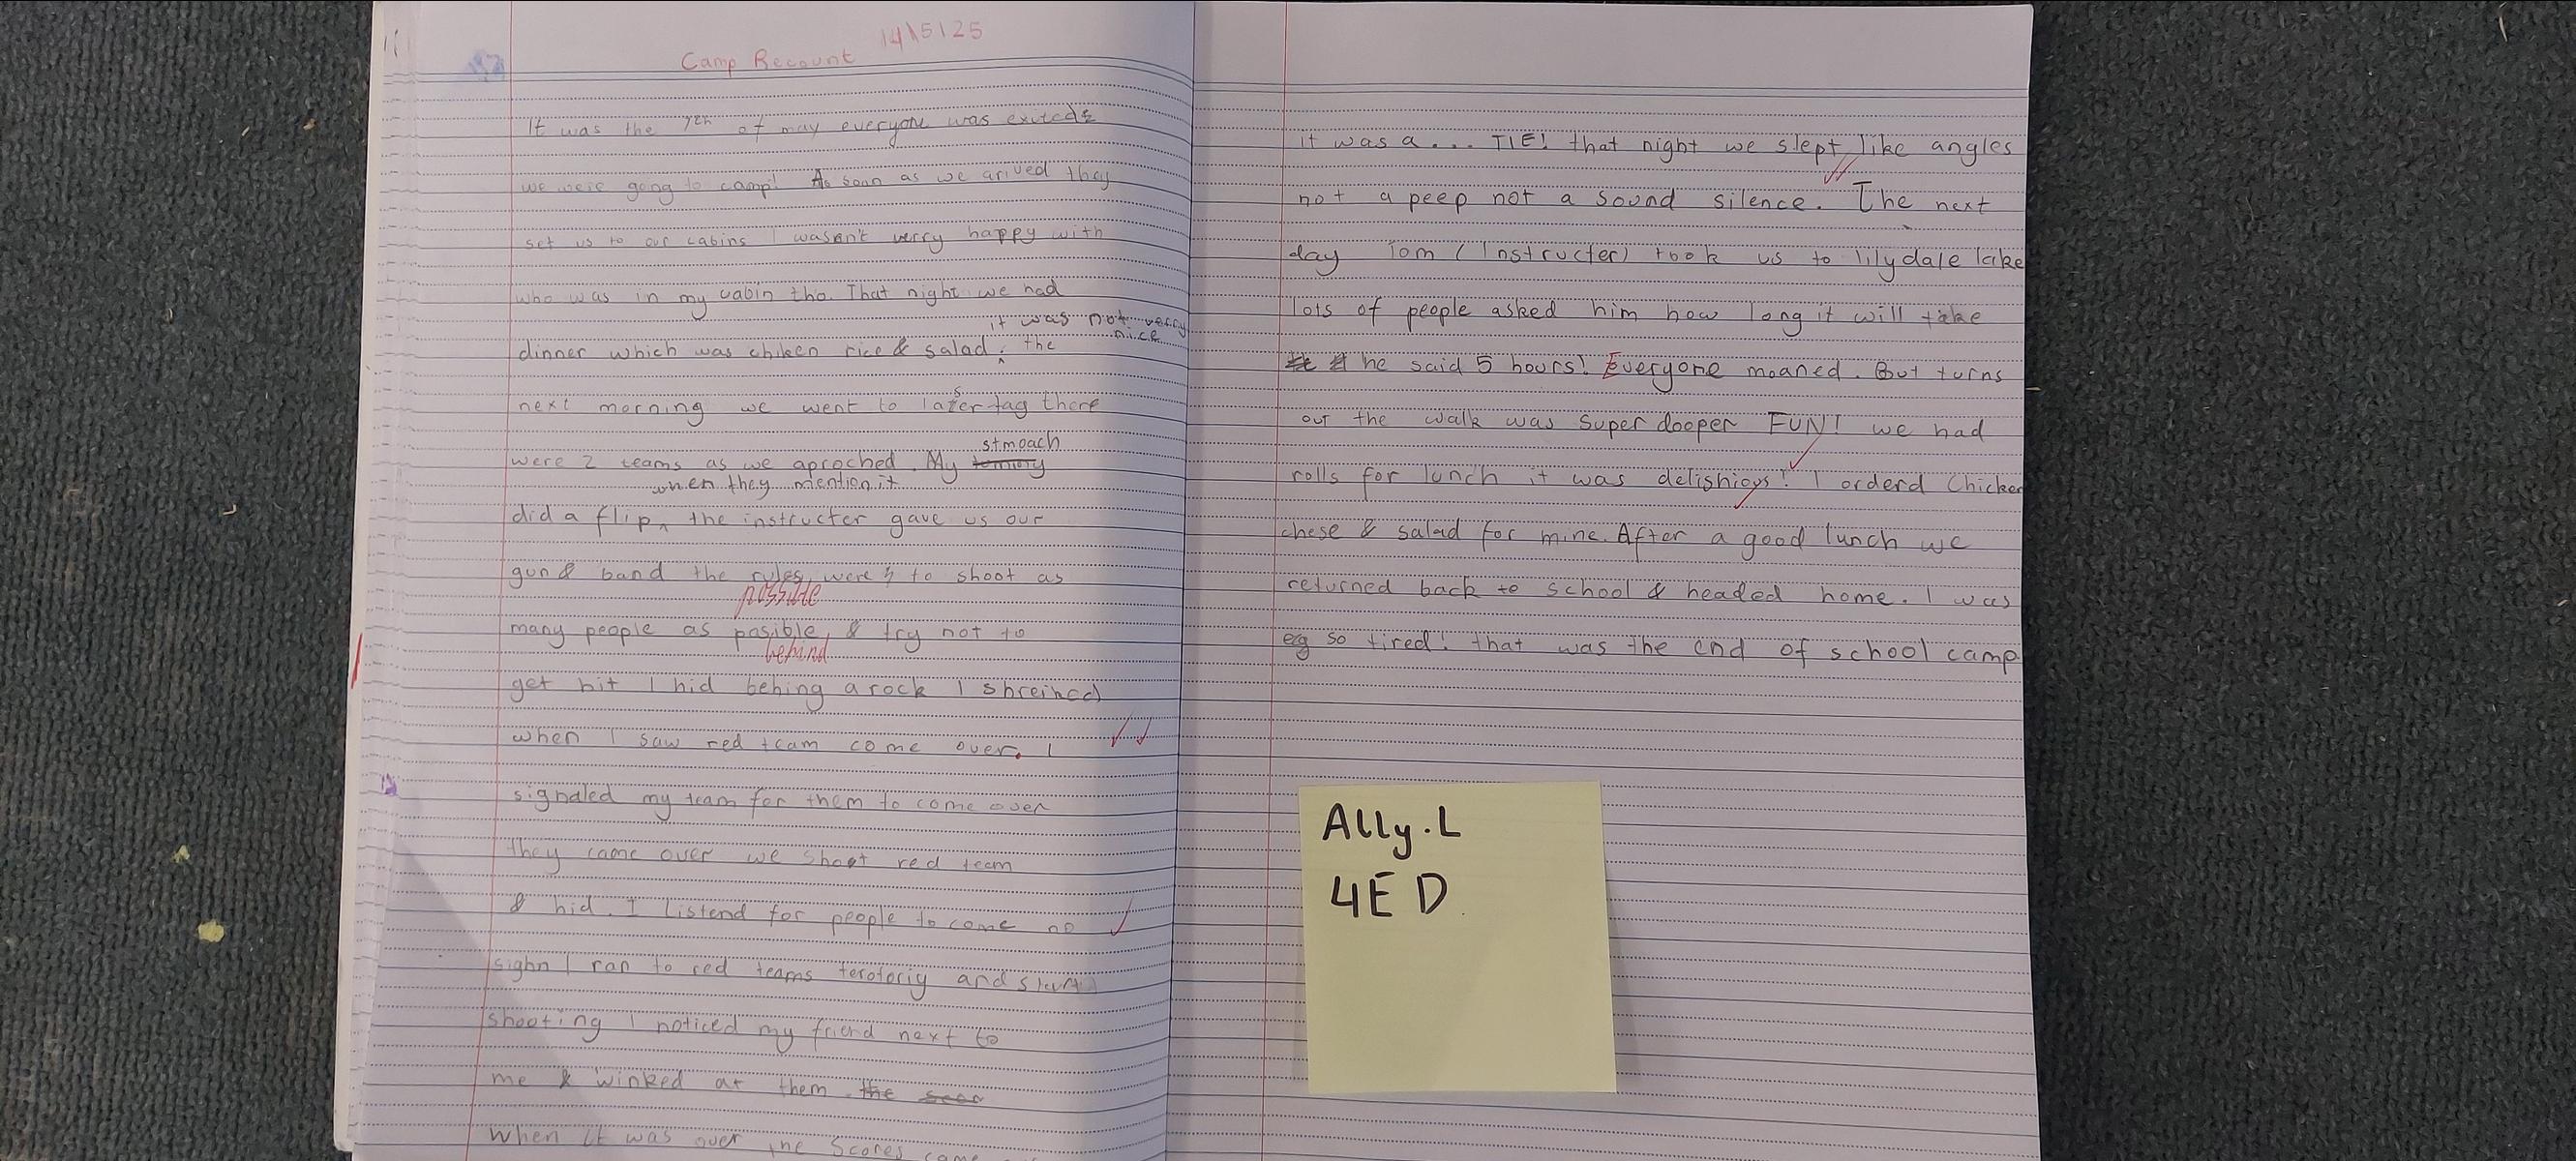 Camp Recount 14\5125
It was the 7th of may everyone was
we were going to camp! As soon as we arived they
set us to our cabins I wasn't verry happy with
who was in my cabin tho. That night we had
it was not verry
nice
dinner which was chiken rice & salad. the
next morning we went to laser tag there
were 2 teams as we aproched. My stmoach
when they mention it
did a flip the instructer gave us our
gun & band the rules were to shoot as
possible
many people as posible, & try not to
behind
get hit I hid behing a rock I shreined
when I saw red team come over. I
signaled my team for them to come over
they came over we shoot red team
& hid. I listend for people to come no
sighn I ran to red teams terotoriy and
shooting I noticed my friend next to
me & winked at them the
When it was over the Scores came
it was a... TIE! that night we slept like angles
not a peep not a sound silence. The next
day Tom (Instructer) took us to lilydale lake
lots of people asked him how long it will take
he said 5 hours! Everyone moaned. But turns
out the walk was super dooper FUN! we had
rolls for lunch it was delishioys! I orderd Chicken
chese & salad for mine. After a good lunch we
returned back to school & headed home. I was
so tired! that was the end of school camp
Ally.L
4ED